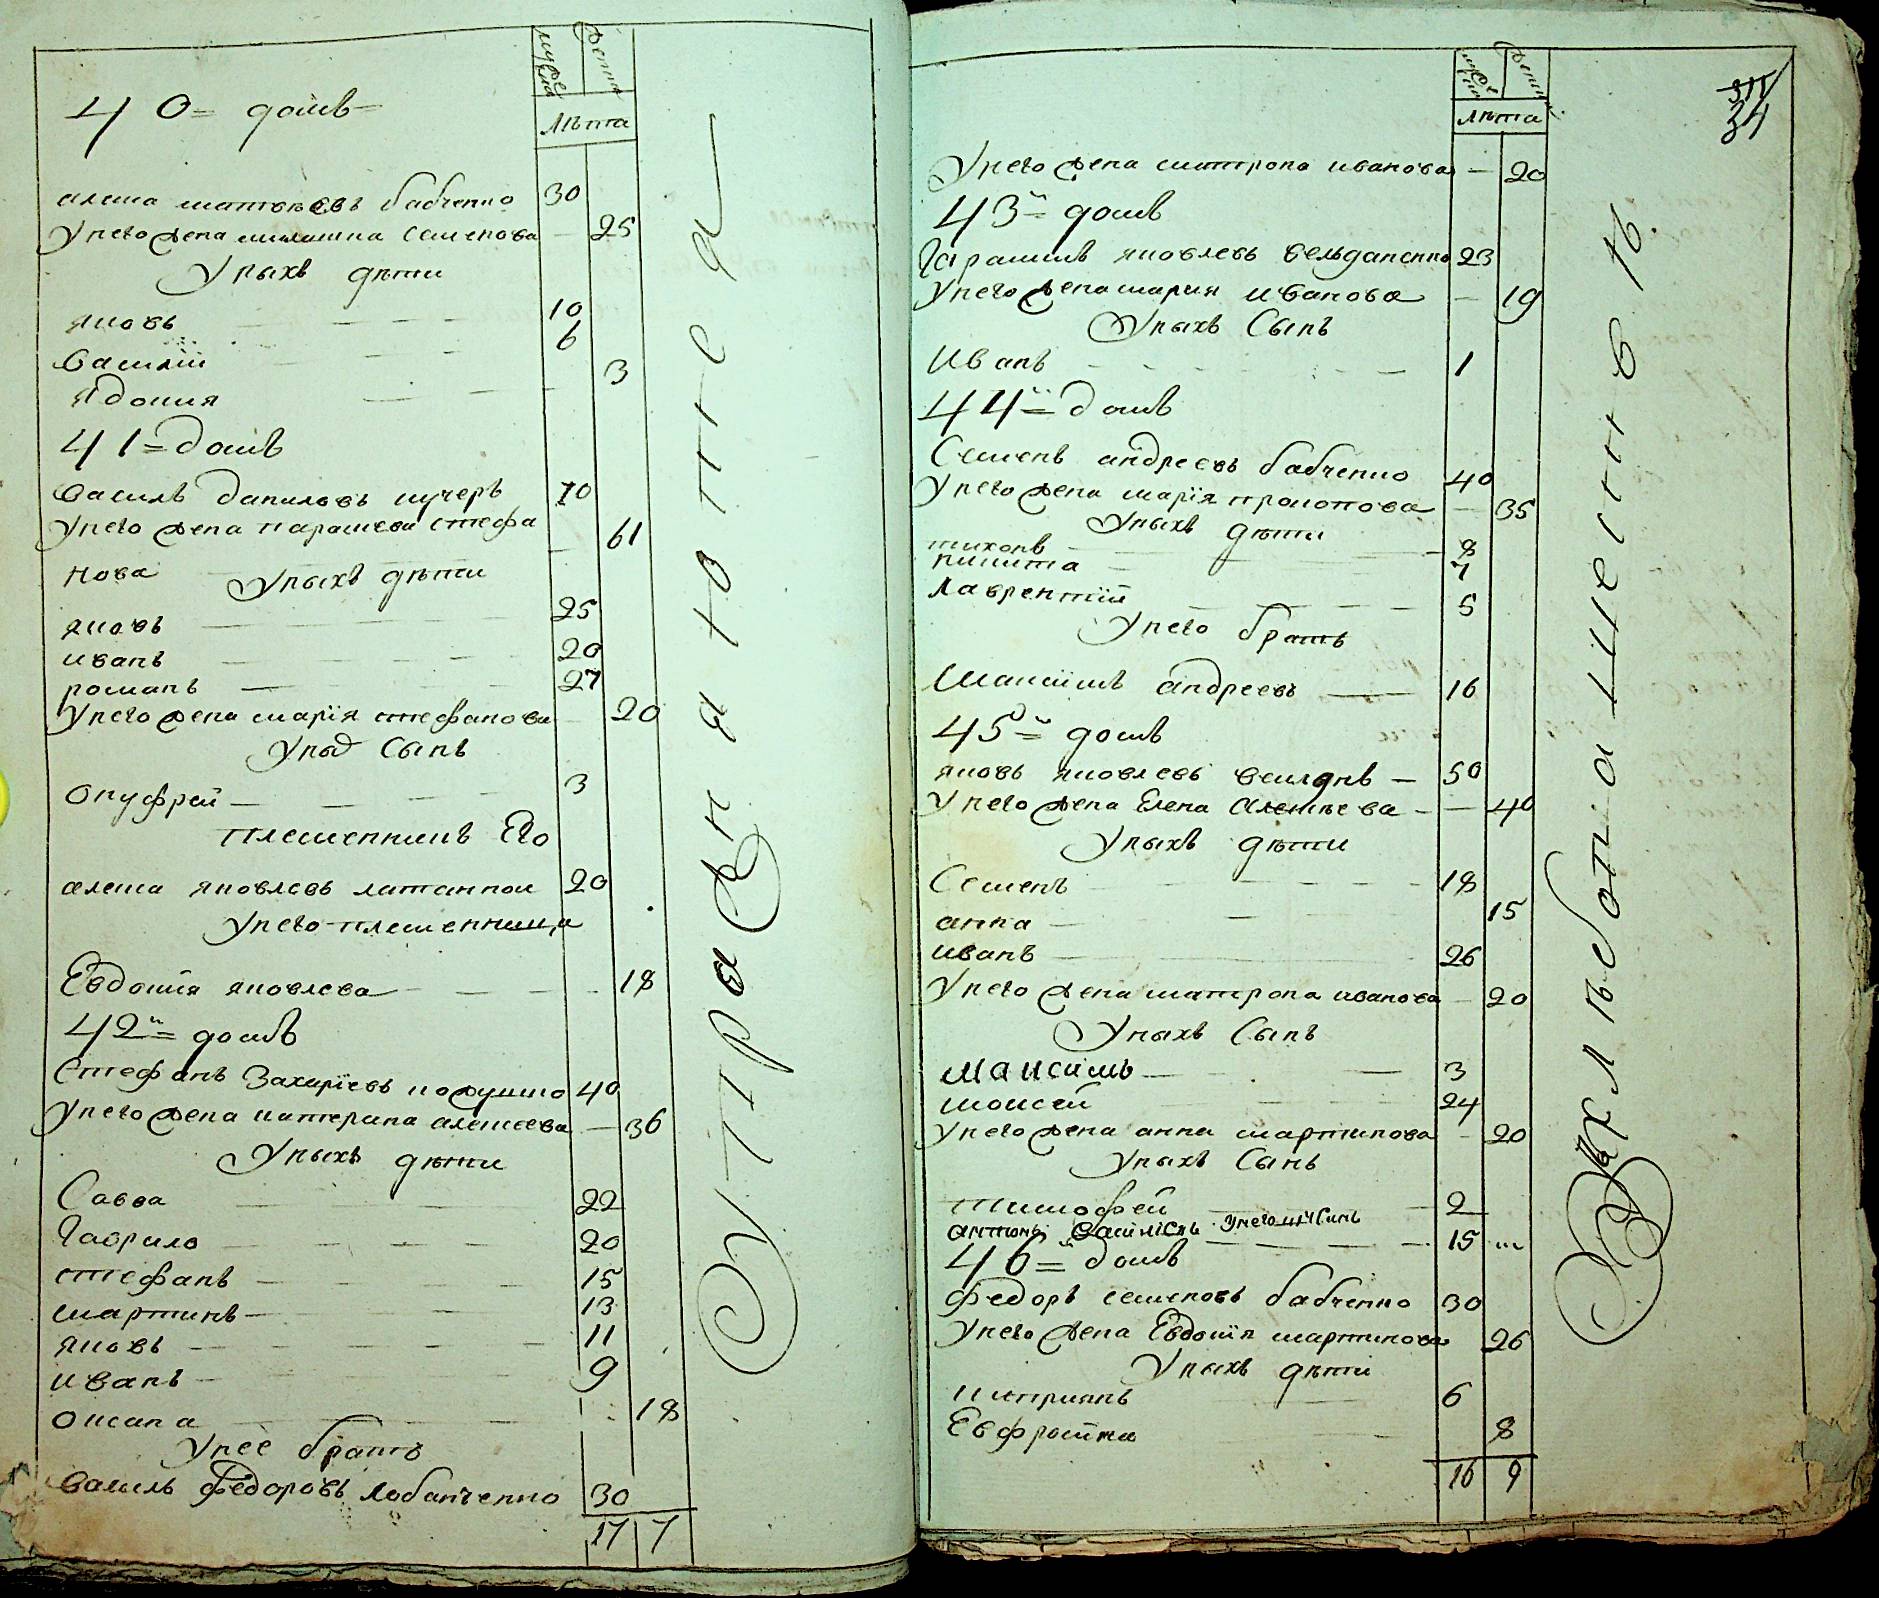 мужеска
женска
Лѣта
40 = домъ
алекса матвѣевъ бабченко 30
У него жена мила­шка семенова 25
У ныхъ дѣти
яковъ 10
василій 6
ядокия 3
41 = домъ
василь даниловъ кучеръ 70
У него жена парасковия стефа
нова 61
У ныхъ дѣти
яковъ 25
иванъ 20
романъ 27
У него жена марія стефанова 20
У ных Сынъ
онуфрей 3
племенникъ Его
алекса яковлевъ латаннои 20
У него племенница
Евдокия яковлева 18
42й = домъ
стефанъ Захаріевъ кожушко 40
У него жена катерина алексеева 36
У ныхъ дѣти
Савва 22
Гаврило 20
стефанъ 15
мартинъ 13
яковъ 11
иванъ 9
оксана 18
У нее братъ
василь Федоровъ лобанченко 30
17 7
мужеска
женска
Лѣта
34
У него жена матрона иванова 20
43й = домъ
Гарасимъ яковлевъ вельданенко 23
У него жена мария иванова 19
У ныхъ Сынъ
Иванъ 1
44й = домъ
Семенъ андреевъ бабченко 40
У него жена марїя прокопова 35
У ныхъ дѣти
тихонъ 8
никита 7
лаврентїй 5
У него братъ
Максїмъ андреевъ 16
45й = домъ
яковъ яковлевъ 50
У него жена Елена Алексѣева 40
У ныхъ дѣти
Семенъ 18
анна 15
иванъ 26
У него жена матрона иванова 20
У ныхъ Сынъ
Максимъ 3
моисей 24
У него жена анна мартинова 20
У ныхъ Сынъ
тимофей 2
антонъ 15
46й = домъ
Федоръ семеновъ бабченко 30
У него жена Евдокїя мартинова 26
У ныхъ дѣти
киприянъ 6
Евфросїнка 8
16 9